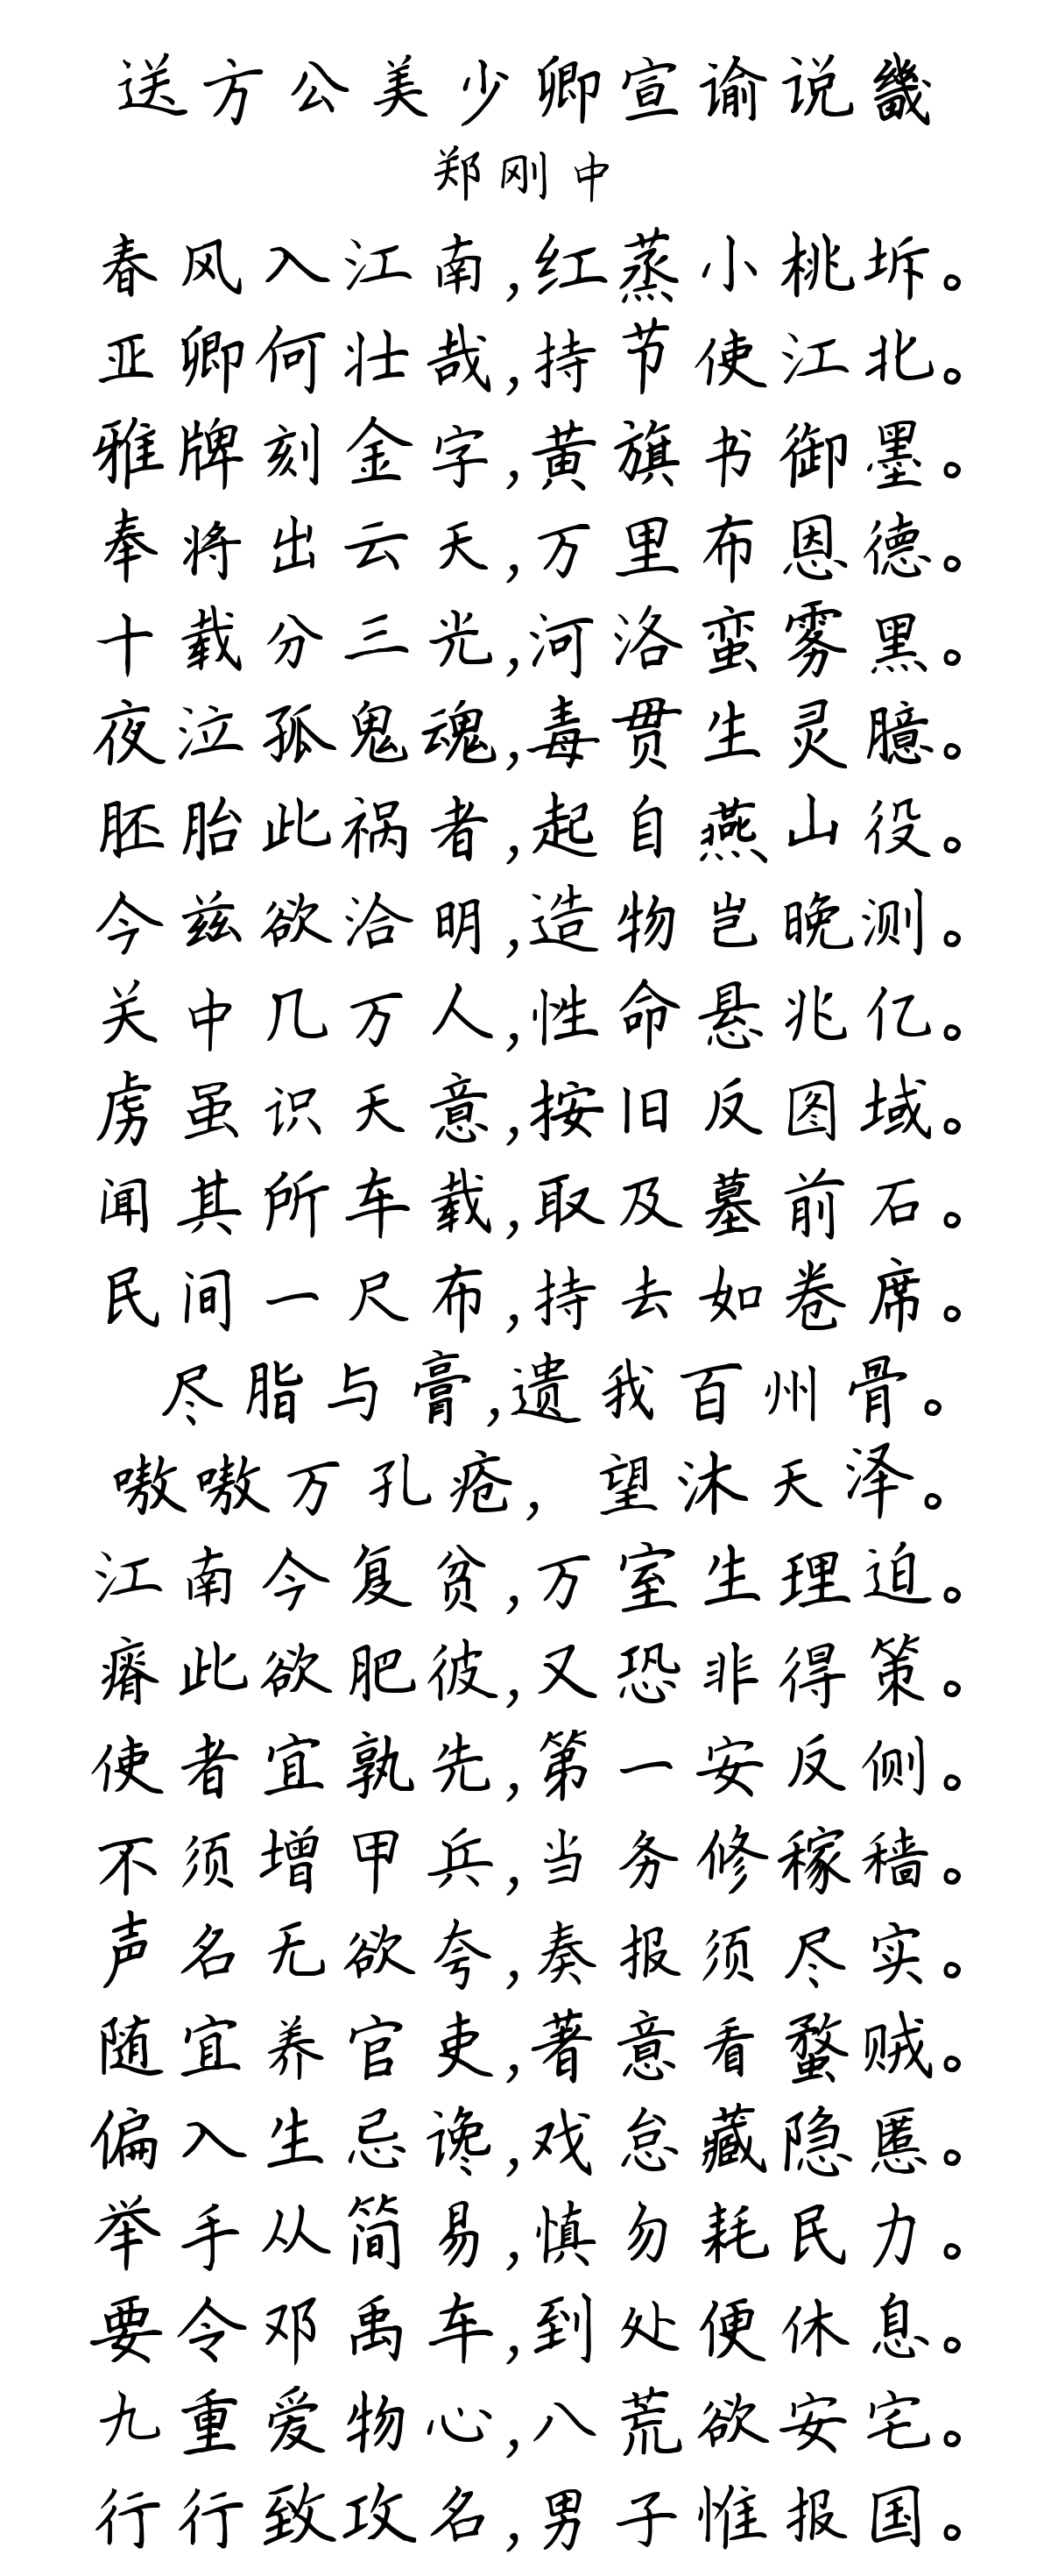 送方公美少卿宣谕说畿
郑刚中
春风入江南,红蒸小桃坼。
亚卿何壮哉,持节使江北。
雅牌刻金字,黄旗书御墨。
奉将出云天,万里布恩德。
十载分三光,河洛蛮雾黑。
夜泣孤鬼魂,毒贯生灵臆。
胚胎此祸者,起自燕山役。
今兹欲洽明,造物岂晚测。
关中几万人,性命悬兆亿。
虏虽识天意,按旧反图域。
闻其所车载,取及墓前石。
民间一尺布,持去如卷席。
尽脂与膏,遗我百州骨。
嗷嗷万孔疮,望沐天泽。
江南今复贫,万室生理迫。
瘠此欲肥彼,又恐非得策。
使者宜孰先,第一安反侧。
不须增甲兵,当务修稼穑。
声名无欲夸,奏报须尽实。
随宜养官吏,著意看蝥贼。
偏入生忌谗,戏怠藏隐慝。
举手从简易,慎勿耗民力。
要令邓禹车,到处便休息。
九重爱物心,八荒欲安宅。
行行致攻名,男子惟报国。